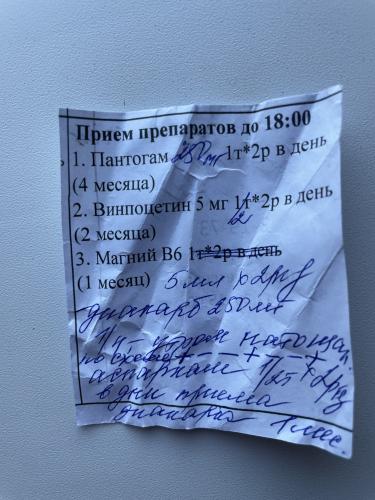 Прием препаратов до 18:00
1. Пантогам 250 мг 1т*2р в день
(4 месяца)
2. Винпоцетин 5 мг 1т*2р в день
(2 месяца) 1/2
3. Магний В6 1т*2р в день
(1 месяц) 5 мл х 2р/д
диакарб 250 мг
1/4 - утром натощак
по схеме + - - + - - +
аспаркам 1/2т х 2р/д
в дни приема
диакарба 1 мес.